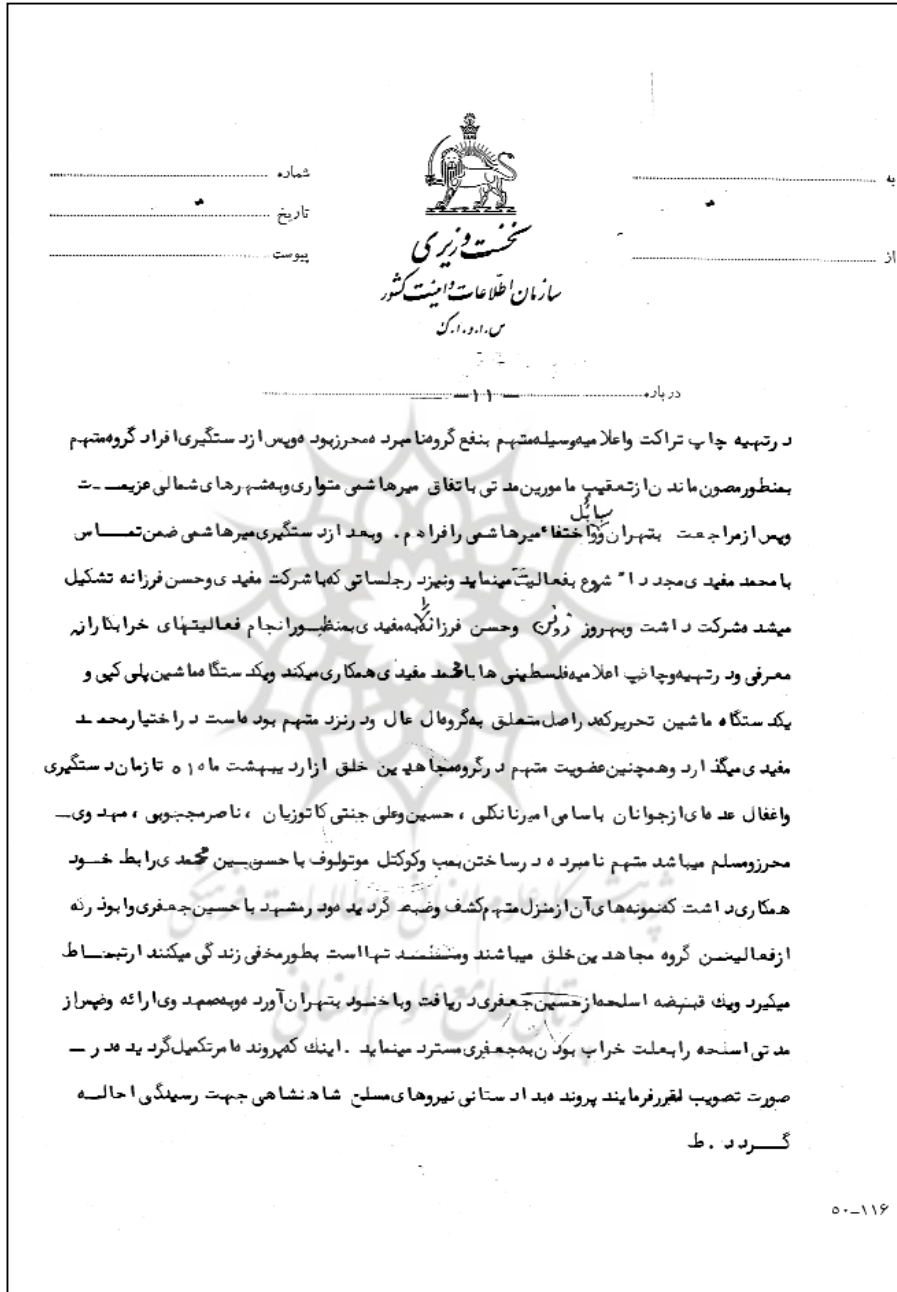 به
از
شماره
تاریخ
پیوست
نخست وزیری
سازمان اطلاعات و امنیت کشور
س.ا.و.ا.ک
درباره
—۱۱—
در تهیه چاپ تراکت و اعلامیه وسیله متهم بنفع گروه نامبرده محرز بوده و پس از دستگیری افراد گروه متهم
بمنظور مصون ماندن از تعقیب مامورین مدتی باتفاق میرهاشمی متواری و به شهرهای شمالی عزیمت
و پس از مراجعت بتهران وسائل اختفاء میرهاشمی را فراهم. و بعد از دستگیری میرهاشمی ضمن تماس
با محمد مفیدی مجددا" شروع بفعالیت مینماید و نیز در جلساتی که با شرکت مفیدی و حسن فرزانه تشکیل
میشد شرکت داشت و بهروز و حسن فرزانه را به مفیدی بمنظور انجام فعالیتهای خرابکارانه
معرفی و در تهیه و چاپ اعلامیه فلسطینی ها با محمد مفیدی همکاری میکند و یکدستگاه ماشین پلی کپی و
یکدستگاه ماشین تحریر که در اصل متعلق به گروه ال عال و در نزد متهم بوده است در اختیار محمد
مفیدی میگذارد و همچنین عضویت متهم در گروه مجاهدین خلق از اردیبهشت ماه ۵۱ تا زمان دستگیری
و اغفال عده ای از جوانان باسامی امیر نانکلی ، حسین و علی جنتی کاتوزیان ، ناصر محجوبی ، مهدوی —
محرز و مسلم میباشد متهم نامبرده در ساختن بمب و کوکتل موتولوف با حسین محمدی رابط خود
همکاری داشت که نمونه های آن از منزل متهم کشف و ضبط گردیده و در مشهد با حسین جعفری و ابوذر که
از فعالین گروه مجاهدین خلق میباشند و است بطور مخفی زندگی میکنند ارتباط
میگیرد و یک قبضه اسلحه از حسین جعفری دریافت و با خود بتهران آورده و به صمد وی ارائه و پس از
مدتی اسلحه را بعلت خراب بودن به جعفری مسترد مینماید . اینک که پرونده امر تکمیل گردیده در —
صورت تصویب مقرر فرمایند پرونده بدادستانی نیروهای مسلح شاهنشاهی جهت رسیدگی احاله
گردد . ط
۵۰–۱۱۶
پژوهشگاه علوم انسانی و مطالعات فرهنگی
پرتال جامع علوم انسانی